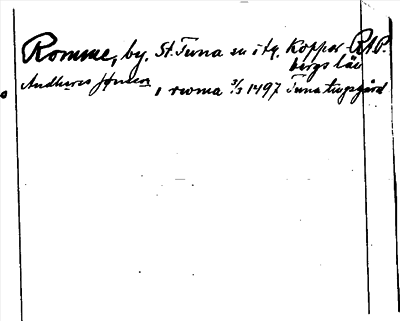 Romme, by. St. Tuna sn o tg. Koppar- RAP.
bergs län
Andhers Jonson, i roma 3/3 1497 Tuna tingsgård